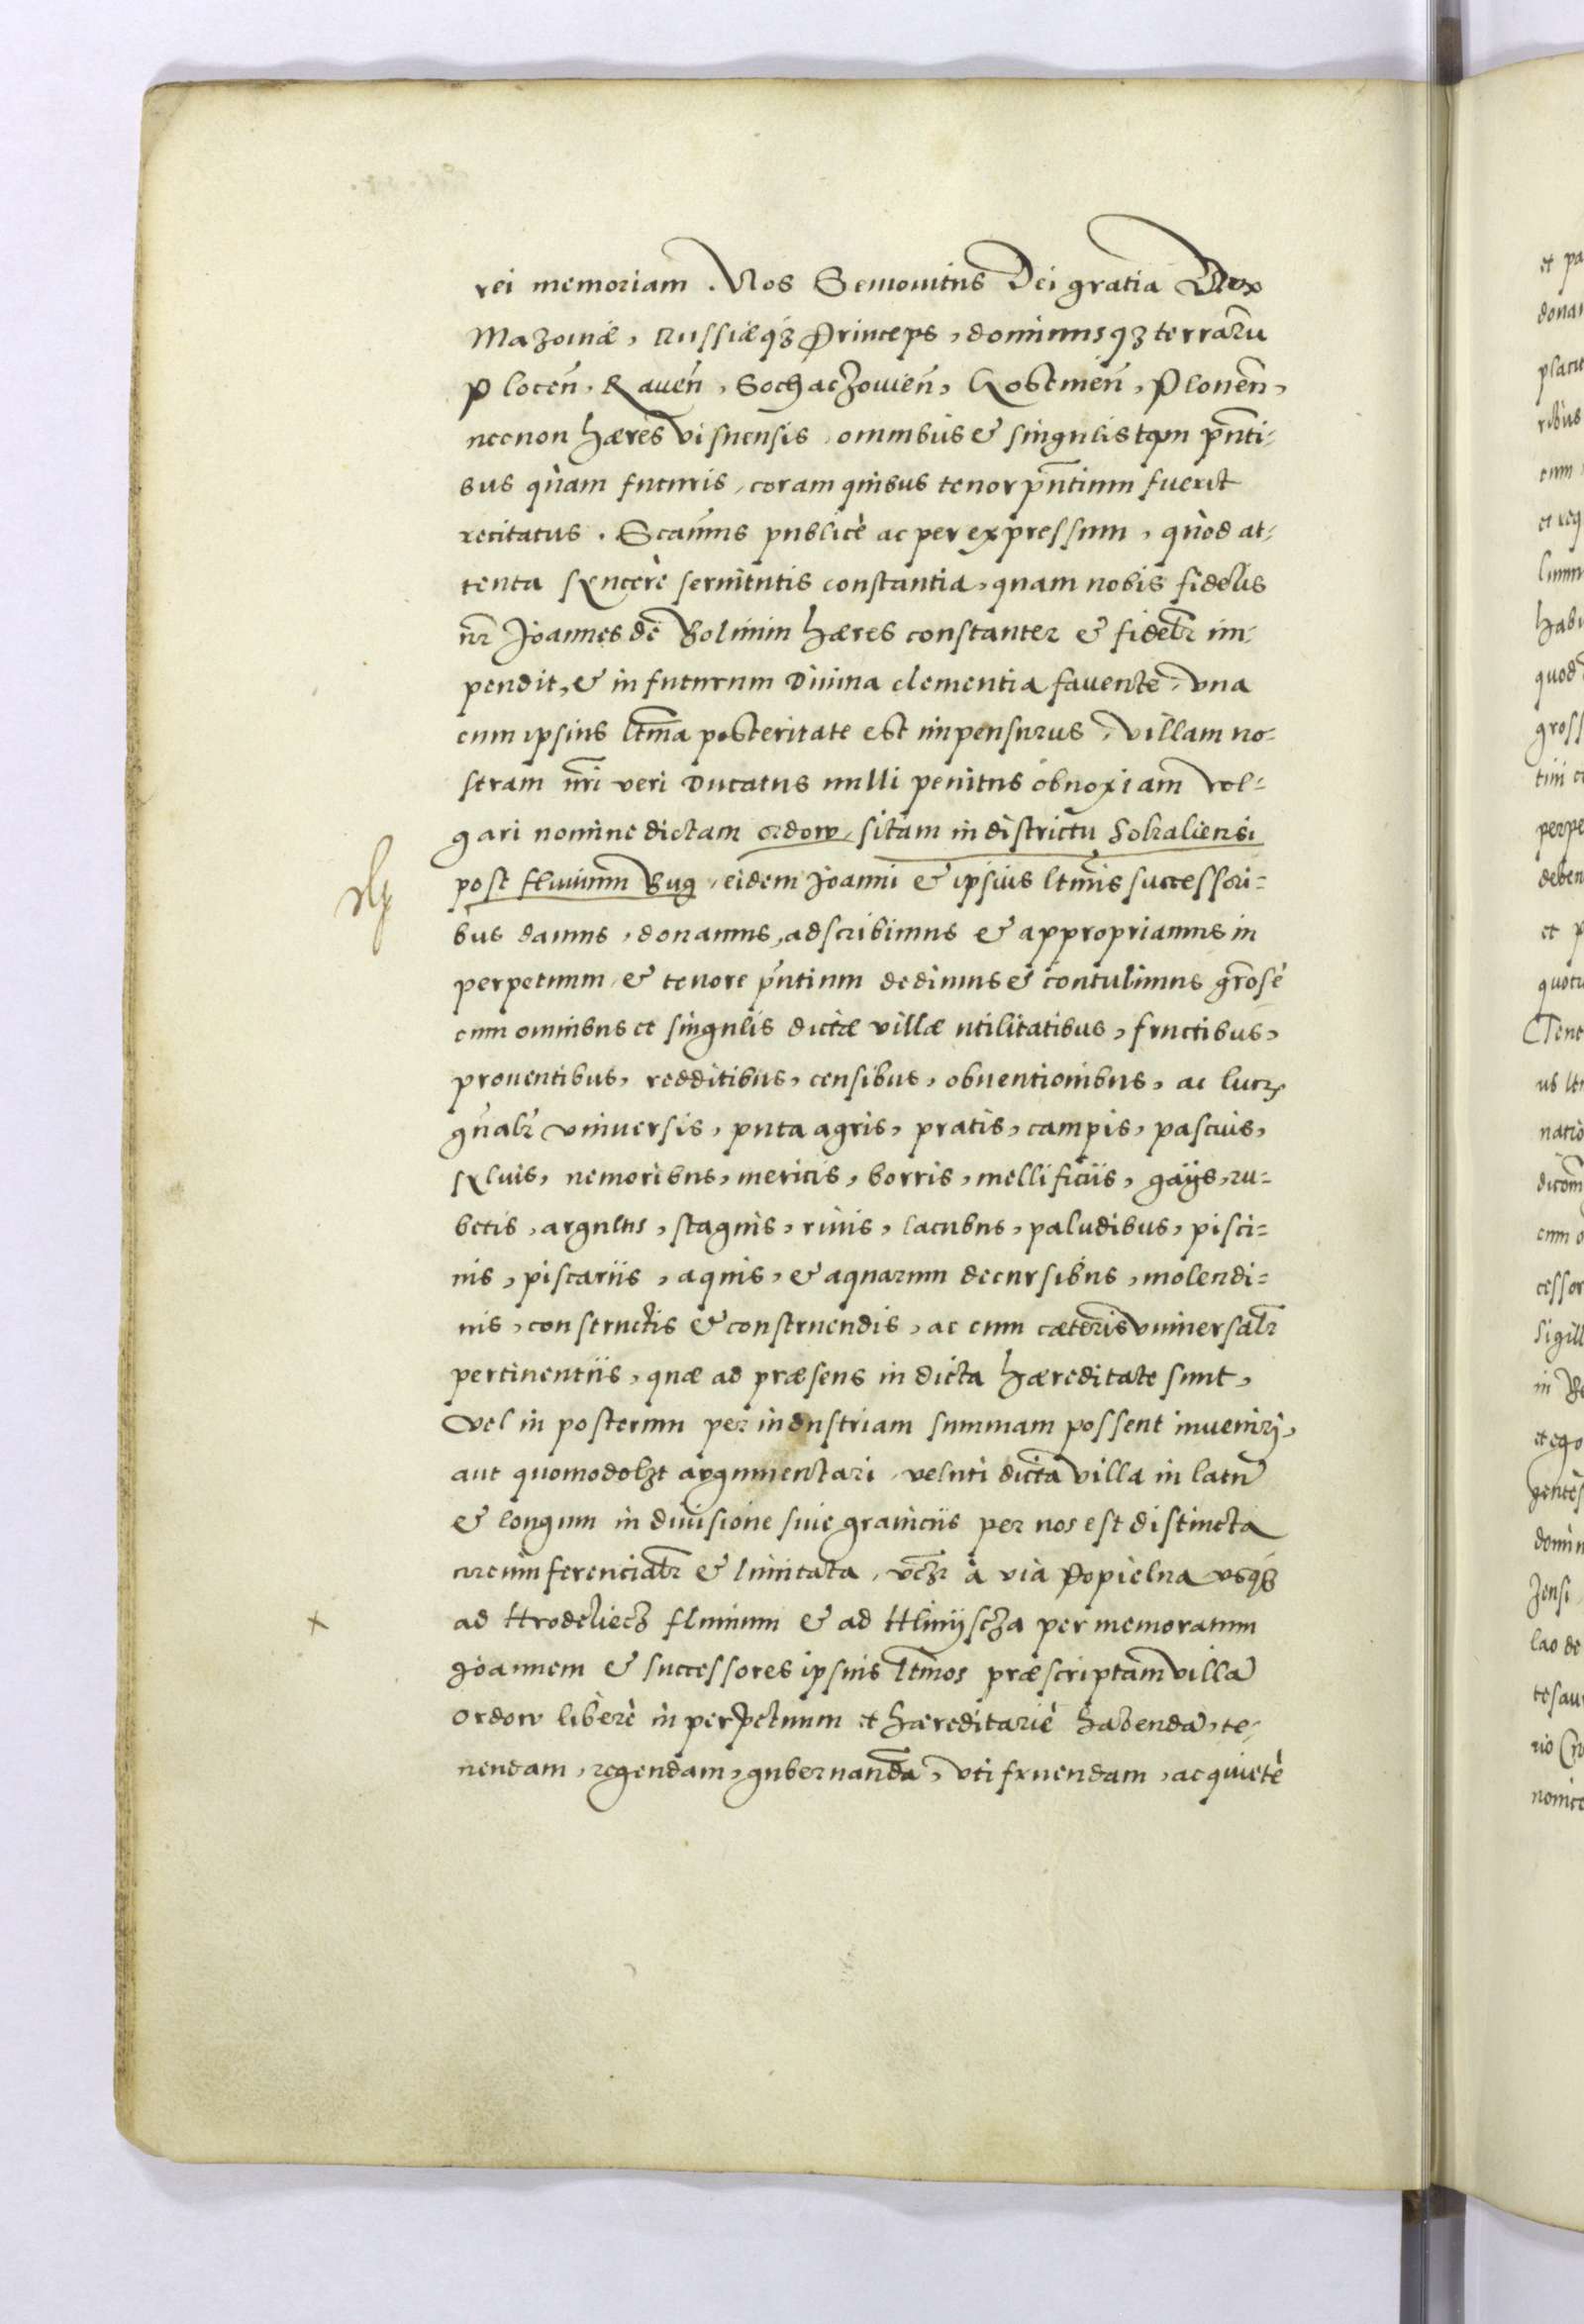 rei memoriam. Nos Semouitus Dei gratia Dux
Mazouiæ, Russiæqꝫ Princeps, dominusqꝫ terrarū
Plocen̄, Rauen̄, Sochaczouien̄, Gostinen̄, Plonen̄,
necnon hæres visnensis, omnibus & singulis tam pn̄ti-
bus quàm futuris, coram quibus tenor pn̄tium fuerit
recitatus. Scaūms publicè ac per expressum, quòd at-
tenta syncerè seruitutis constantia, quam nobis fidelis
nr̄ Joannes de Bolimin hæres constanter & fidelr̄ im-
pendit, & in futurum Diuina clementia fauente, vna
cum ipsius ltm̄a posteritate est impensurus, villam no-
stram nr̄i veri Ducatus nulli penitus obnoxiam vol-
gari nomine dictam ordow, sitam in districtu Sokaliensi
post fluuium Bug, eidem Joanni & ipsius ltm̄is successori-
bus damus, donamus, adscribimus & appropriamus in
perpetuum, & tenore pn̄tium dedimus & contulimus gr̄osè
cum omnibus et singulis dictæ villæ utilitatibus, fructibus,
prouentibus, redditibus, censibus, obuentionibus, ac lucr̄
gn̄alr̄ vniuersis, puta agris, pratis, campis, pascuis,
syluis, nemoribus, mericis, borris, mellificiis, gays, ru-
betis, argultis, stagnis, riuis, lacubus, paludibus, pisci-
nis, piscariis, aquis, & aquarum decursibus, molendi-
nis, constructis & construendis, ac cum cæteris vniuersalr̄
pertinentiis, quæ ad præsens in dicta hæreditate sunt,
vel in posterum per industriam summam possent inueniri,
aut quomodolꝫt argumentari, veluti dicta villa in latū
& longum in diuisione siue graniciis per nos est distincta
circumferencialr̄ & limitata, vꝫ à via Popielna vsqꝫ
ad Hrodeliecz fluuium & ad Hliniscza per memoratum
Joannem & successores ipsius ltm̄os præscriptam villā
ordow liberè in perpetuum et hæreditariè habendā, te-
nendam, regendam, gubernandā, vti fruendam, ac quietè